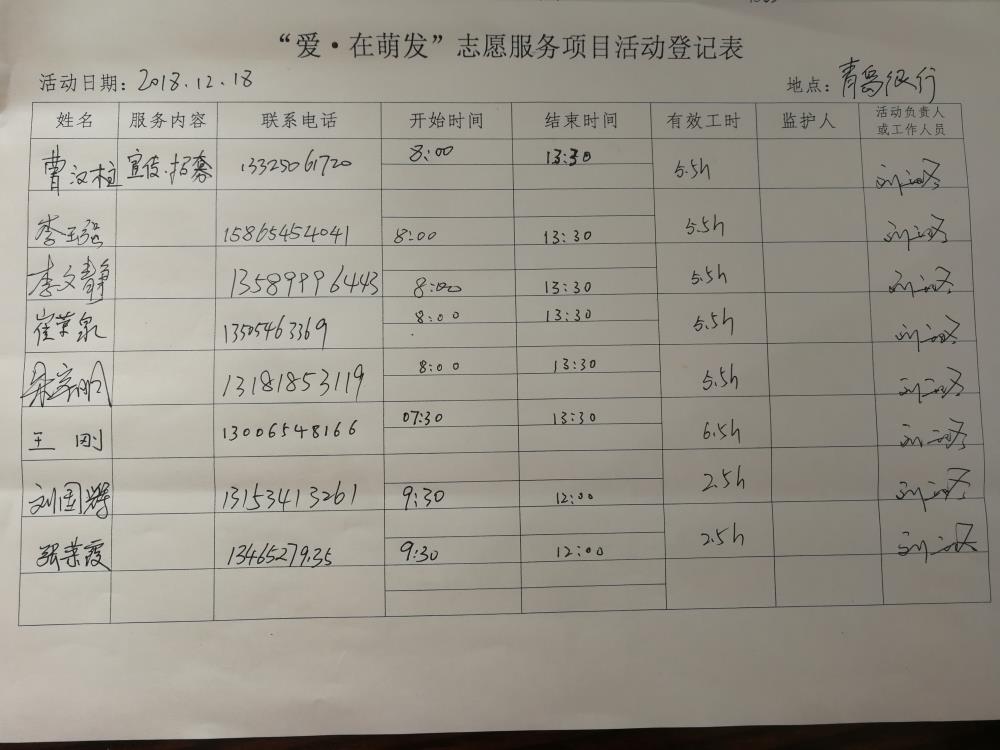 “爱·在萌发”志愿服务项目活动登记表
活动日期：2018.12.18 地点：青岛银行
姓名 服务内容 联系电话 开始时间 结束时间 有效工时 监护人 活动负责人或工作人员
曹汉柱 宣传.招募 13325061720 8:00 13:30 5.5h
李玉强 15865454041 8:00 13:30 5.5h
李文静 13589996443 8:00 13:30 5.5h
崔荣泉 13505463369 8:00 13:30 5.5h
13181853119 8:00 13:30 5.5h
王刚 13006548166 07:30 13:30 6.5h
刘国辉 13153413261 9:30 12:00 2.5h
张荣霞 1346527935 9:30 12:00 2.5h